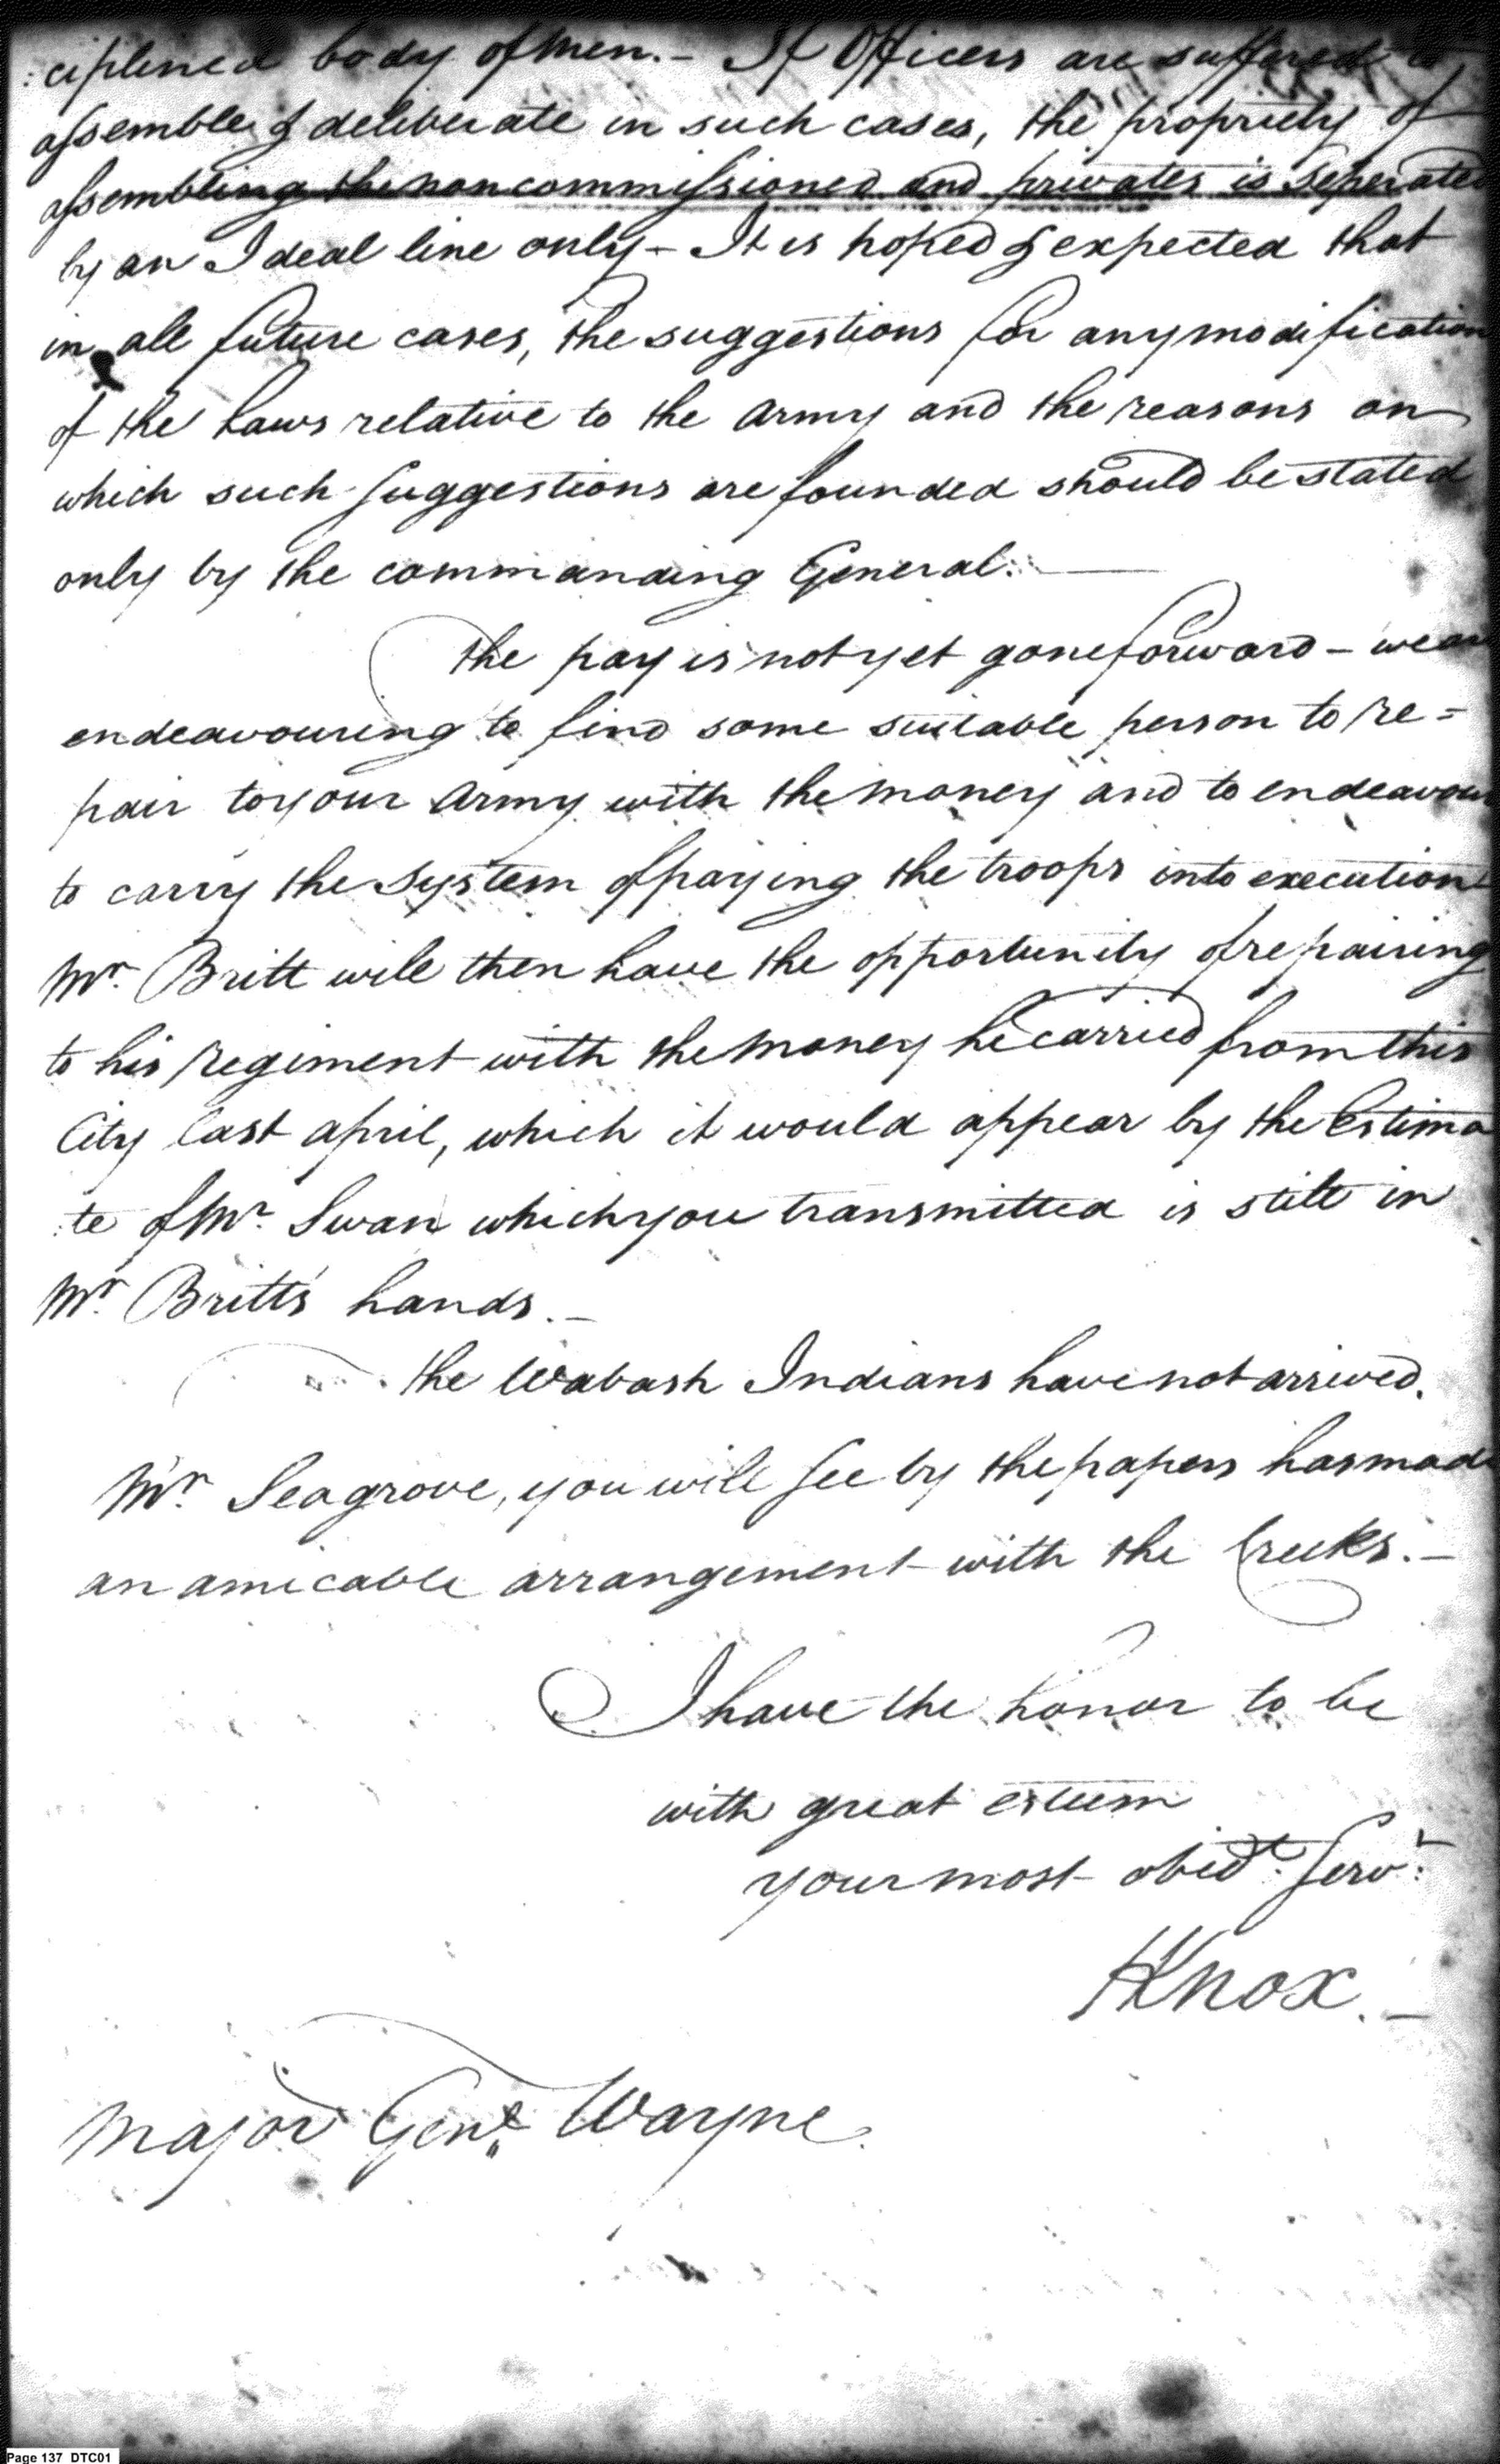 :ciplined body of men.- If Officers are suffered to
assemble & deliberate in such cases, the propriety of
assembling the noncommissioned and privates is seperated
by an Ideal line only - It is hoped & expected that
in all future cases, the suggestions for any modification
of the Laws relative to the Army and the reasons on
which such suggestions are founded should be stated
only by the commanding General.
The pay is not yet gone forward - we are
endeavouring to find some suitable person to re=
pair to your Army with the money and to endeavour
to carry the System of paying the troops into execution
Mr. Britt will then have the opportunity of repairing
to his regiment with the money he carried from this
City last april, which it would appear by the Estima
:te of Mr. Swan which you transmitted is still in
Mr. Britt's hands.-
The Wabash Indians have not arrived.
Mr. Seagrove, you will see by the papers has made
an amicable arrangement with the Creeks.-
I have the honor to be
with great esteem
your most obedt. Servt.
HKnox.-
Major Genl. Wayne.
Page 137 DTC01